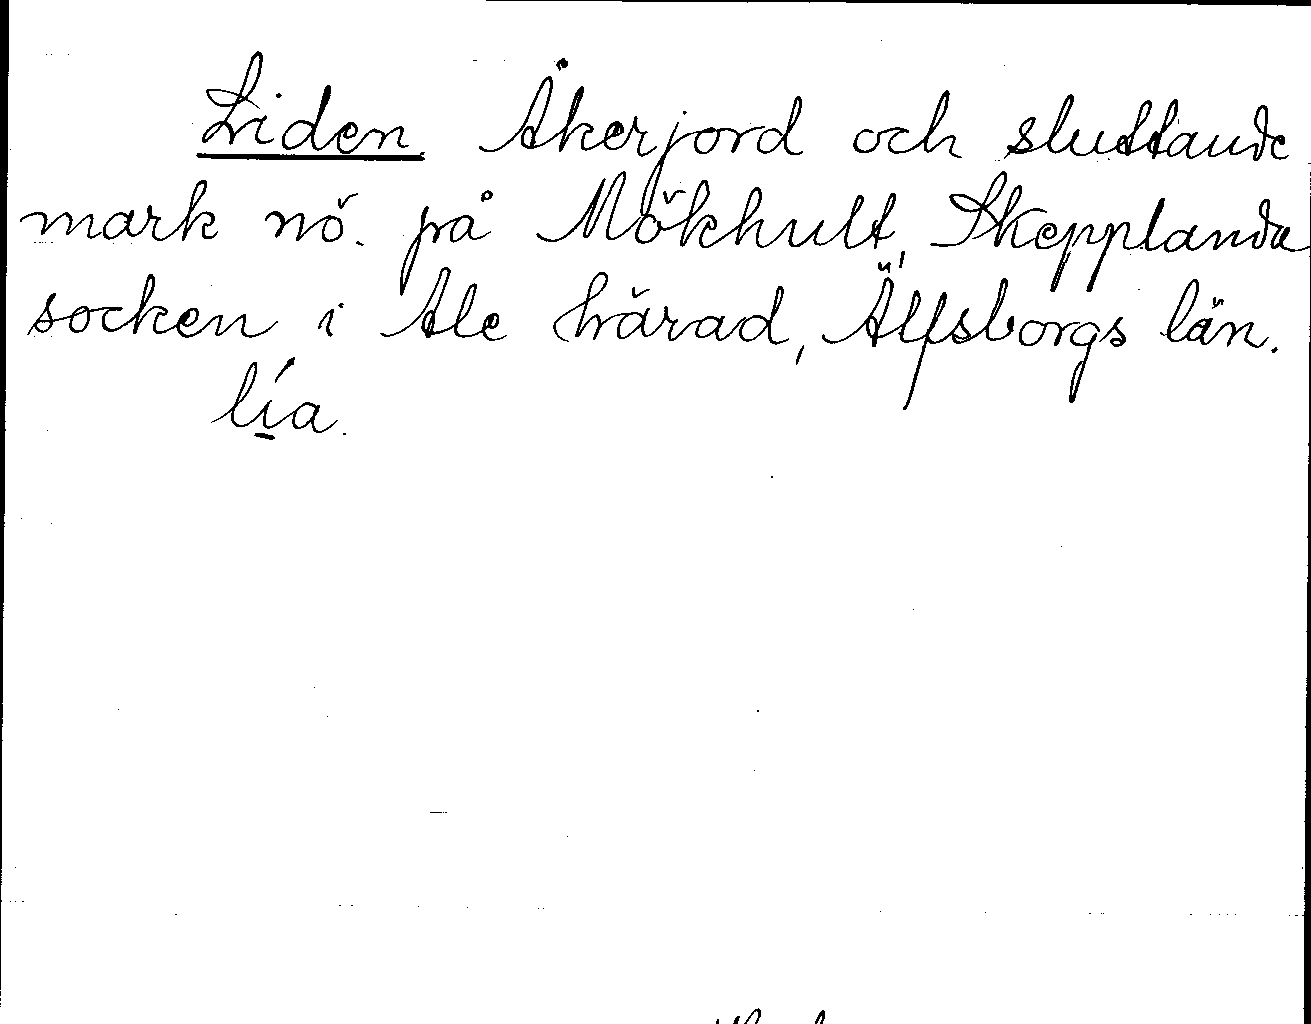 Liden. Åkerjord och sluttande
mark nö. på Mökhult, Skepplanda
socken i Ale härad, Älfsborgs län.
lía.